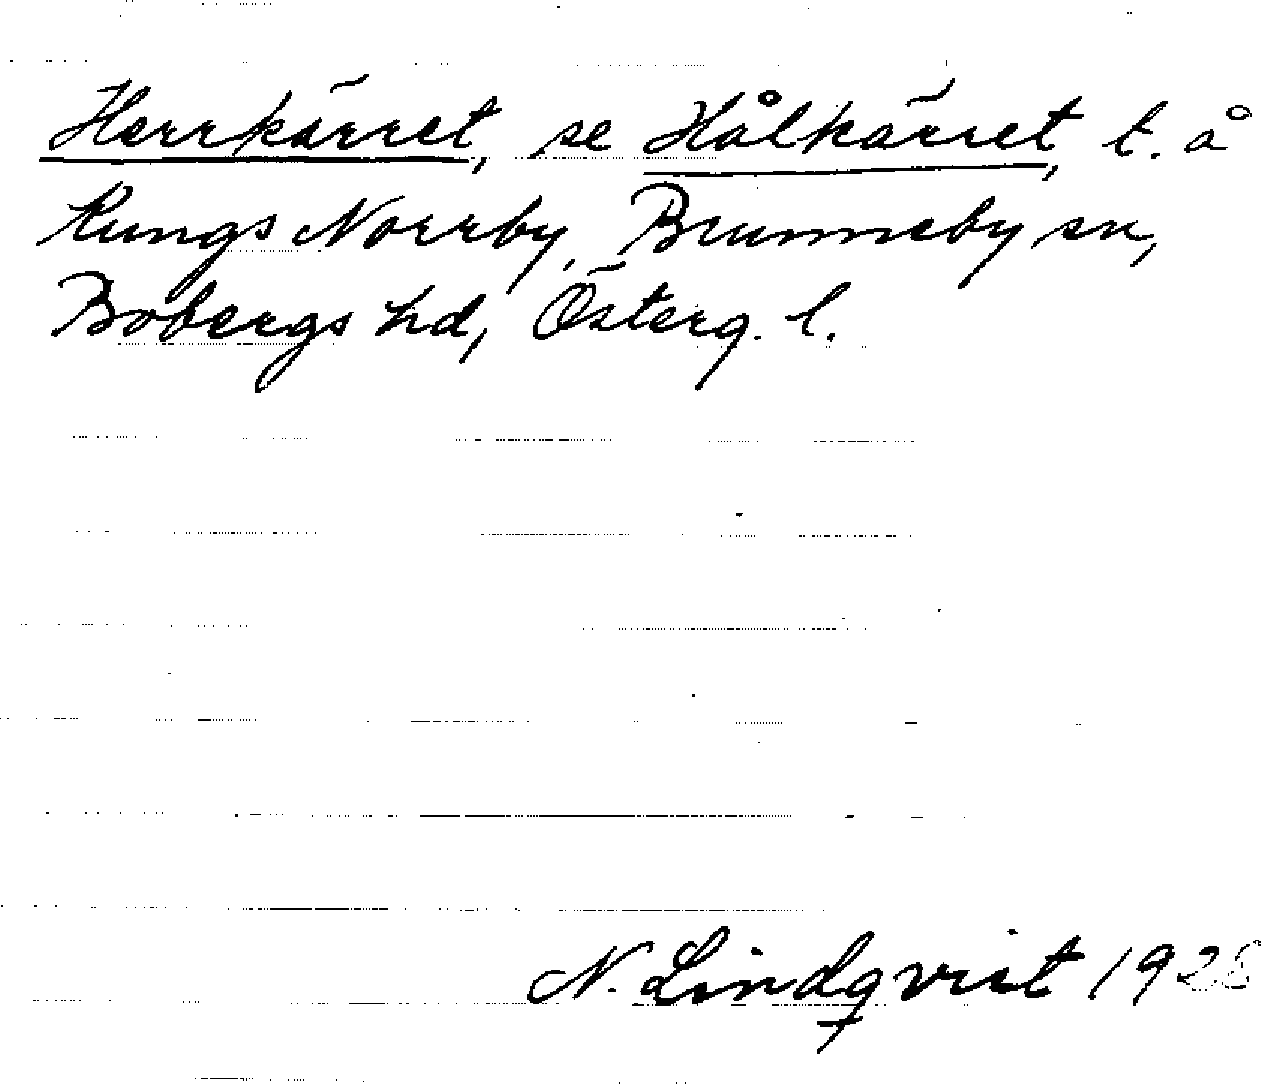 Herrkärret, se Hålkärret, t. å
Kungs Norrby, Brunneby sn,
Bobergs hd, Österg. l.
N. Lindqvist 1928